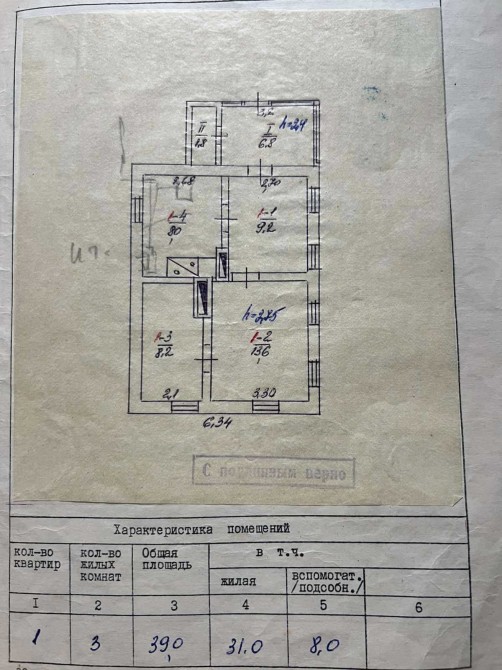 II
1.8
I
6.8
h=2,4
2,68
2,70
1-4
80
1-1
9.2
1-3
8.2
h=2,85
1-2
136
2,1
3,30
6,34
С подлинным верно
Характеристика помещений
кол-во квартир
кол-во жилых комнат
Общая площадь
в т.ч.
жилая
вспомогат. /подсобн./
I 2 3 4 5 6
1 3 39,0 31.0 8,0